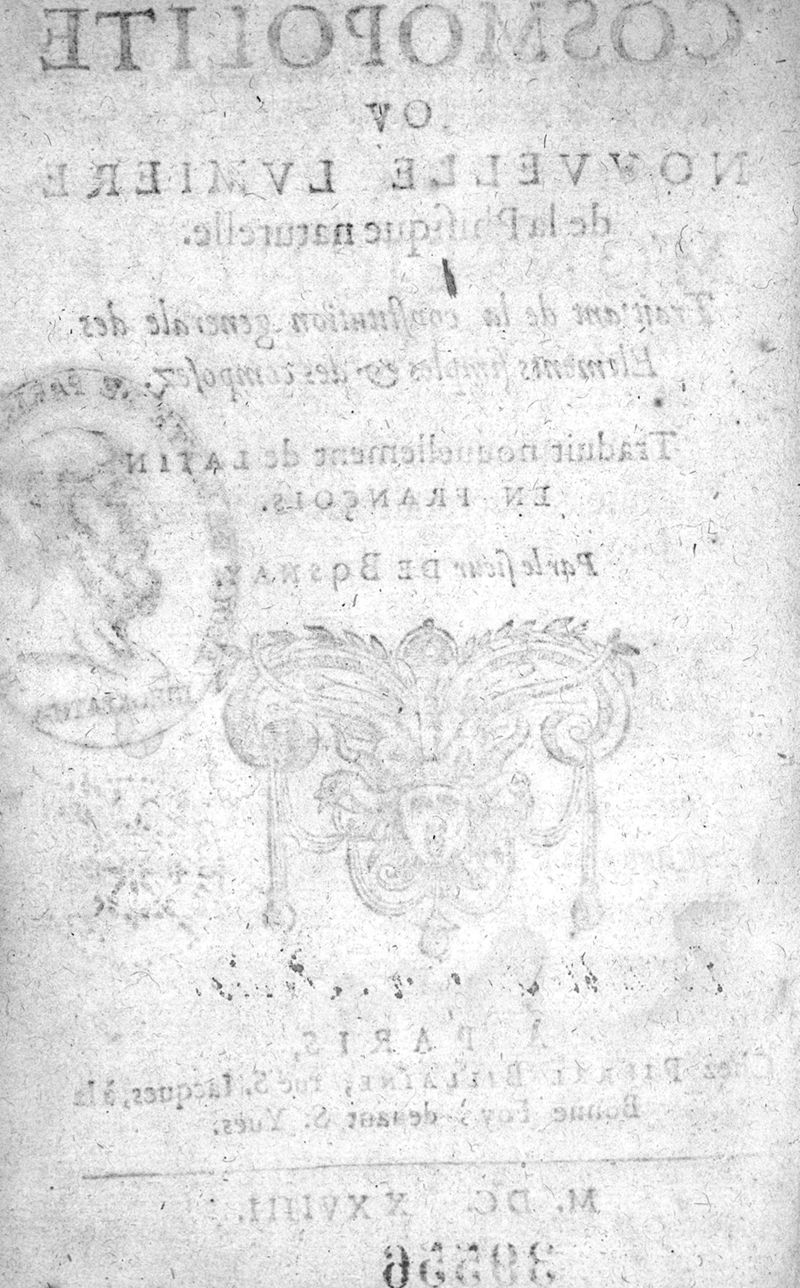 COSMOPOLITE
OV
NOVVELLE LVMIERE
de la Phisique naturelle.
Traittant de la constitution generale des
Elements simples & des composez.
Traduit nouuellement de LATIN
EN FRANÇOIS.
Par le sieur DE BOSNAY.
A PARIS,
Chez PIERRE BILLAINE, rue S. Iacques, à la
Bonne Foy, deuant S. Yues.
M. DC. XXVIIII.
39556